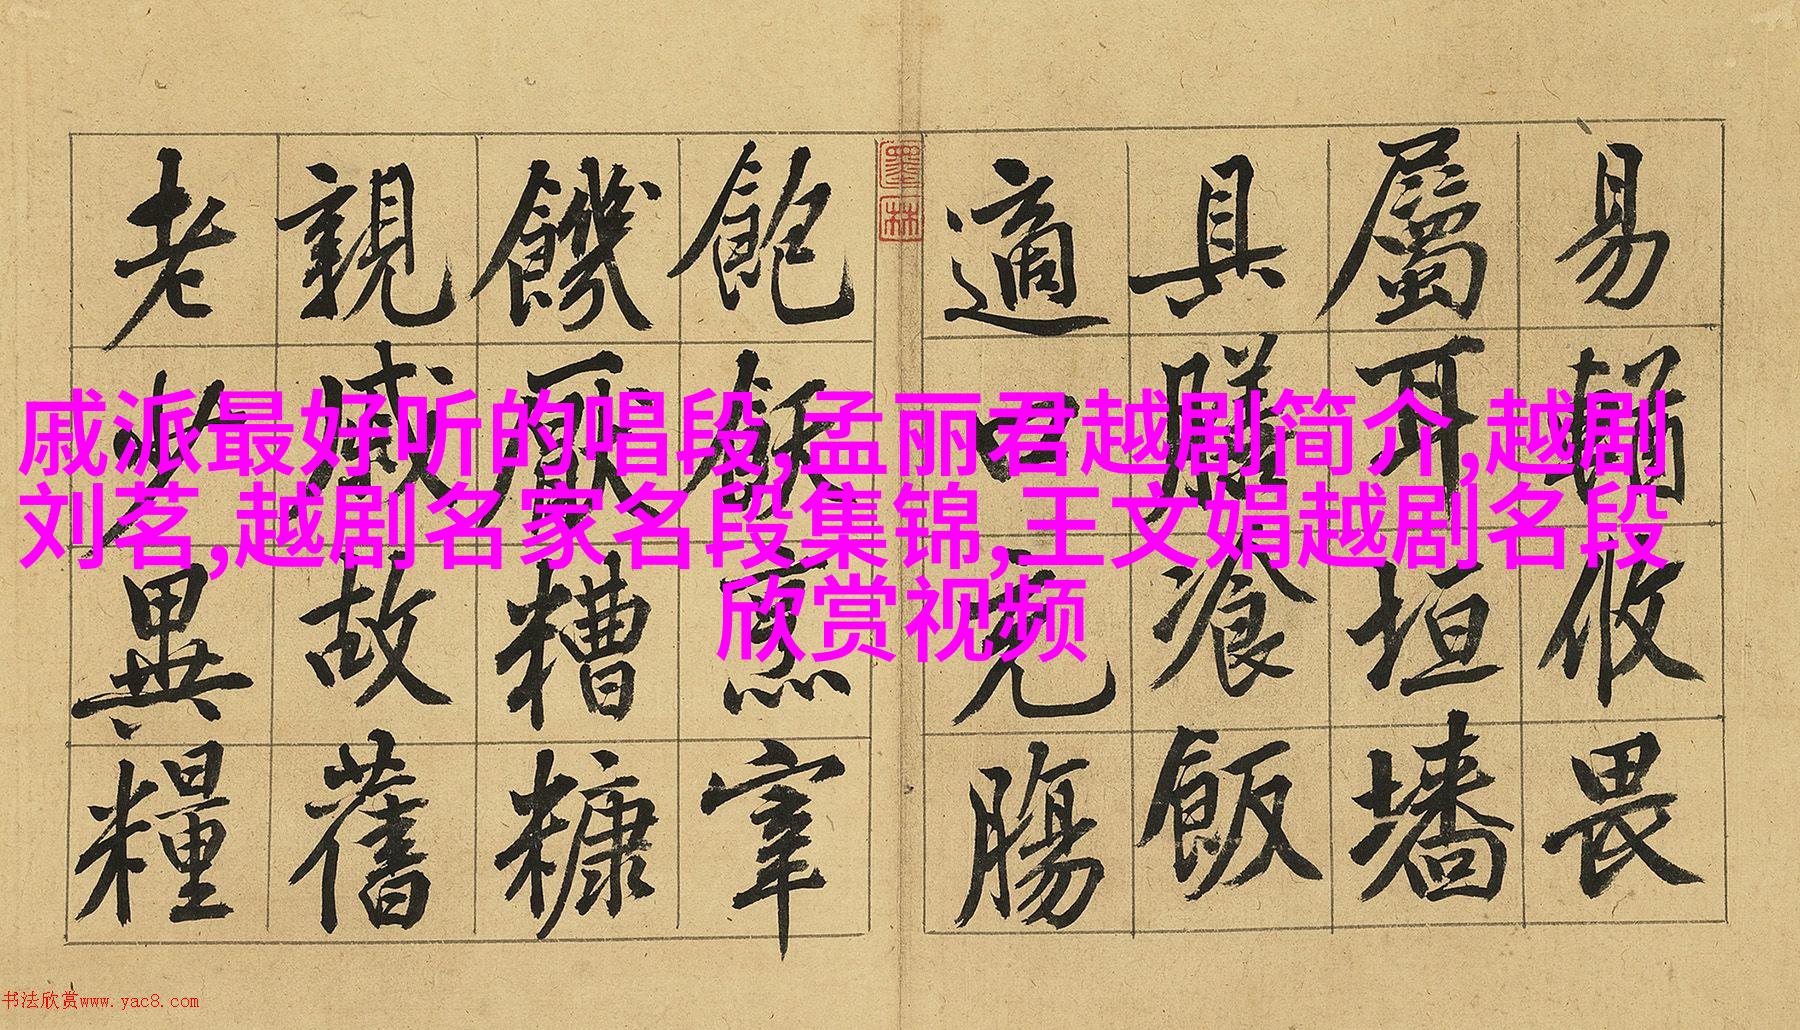 易輶攸畏
屬耳垣墻
具膳湌飯
適口充腸
墨林
飽飫烹宰
饑厭糟糠
親戚故舊
老少異糧
戚派最好听的唱段,孟丽君越剧简介,越剧
刘茗,越剧名家名段集锦,王文娟越剧名段
欣赏视频
书法欣赏www.yac8.com